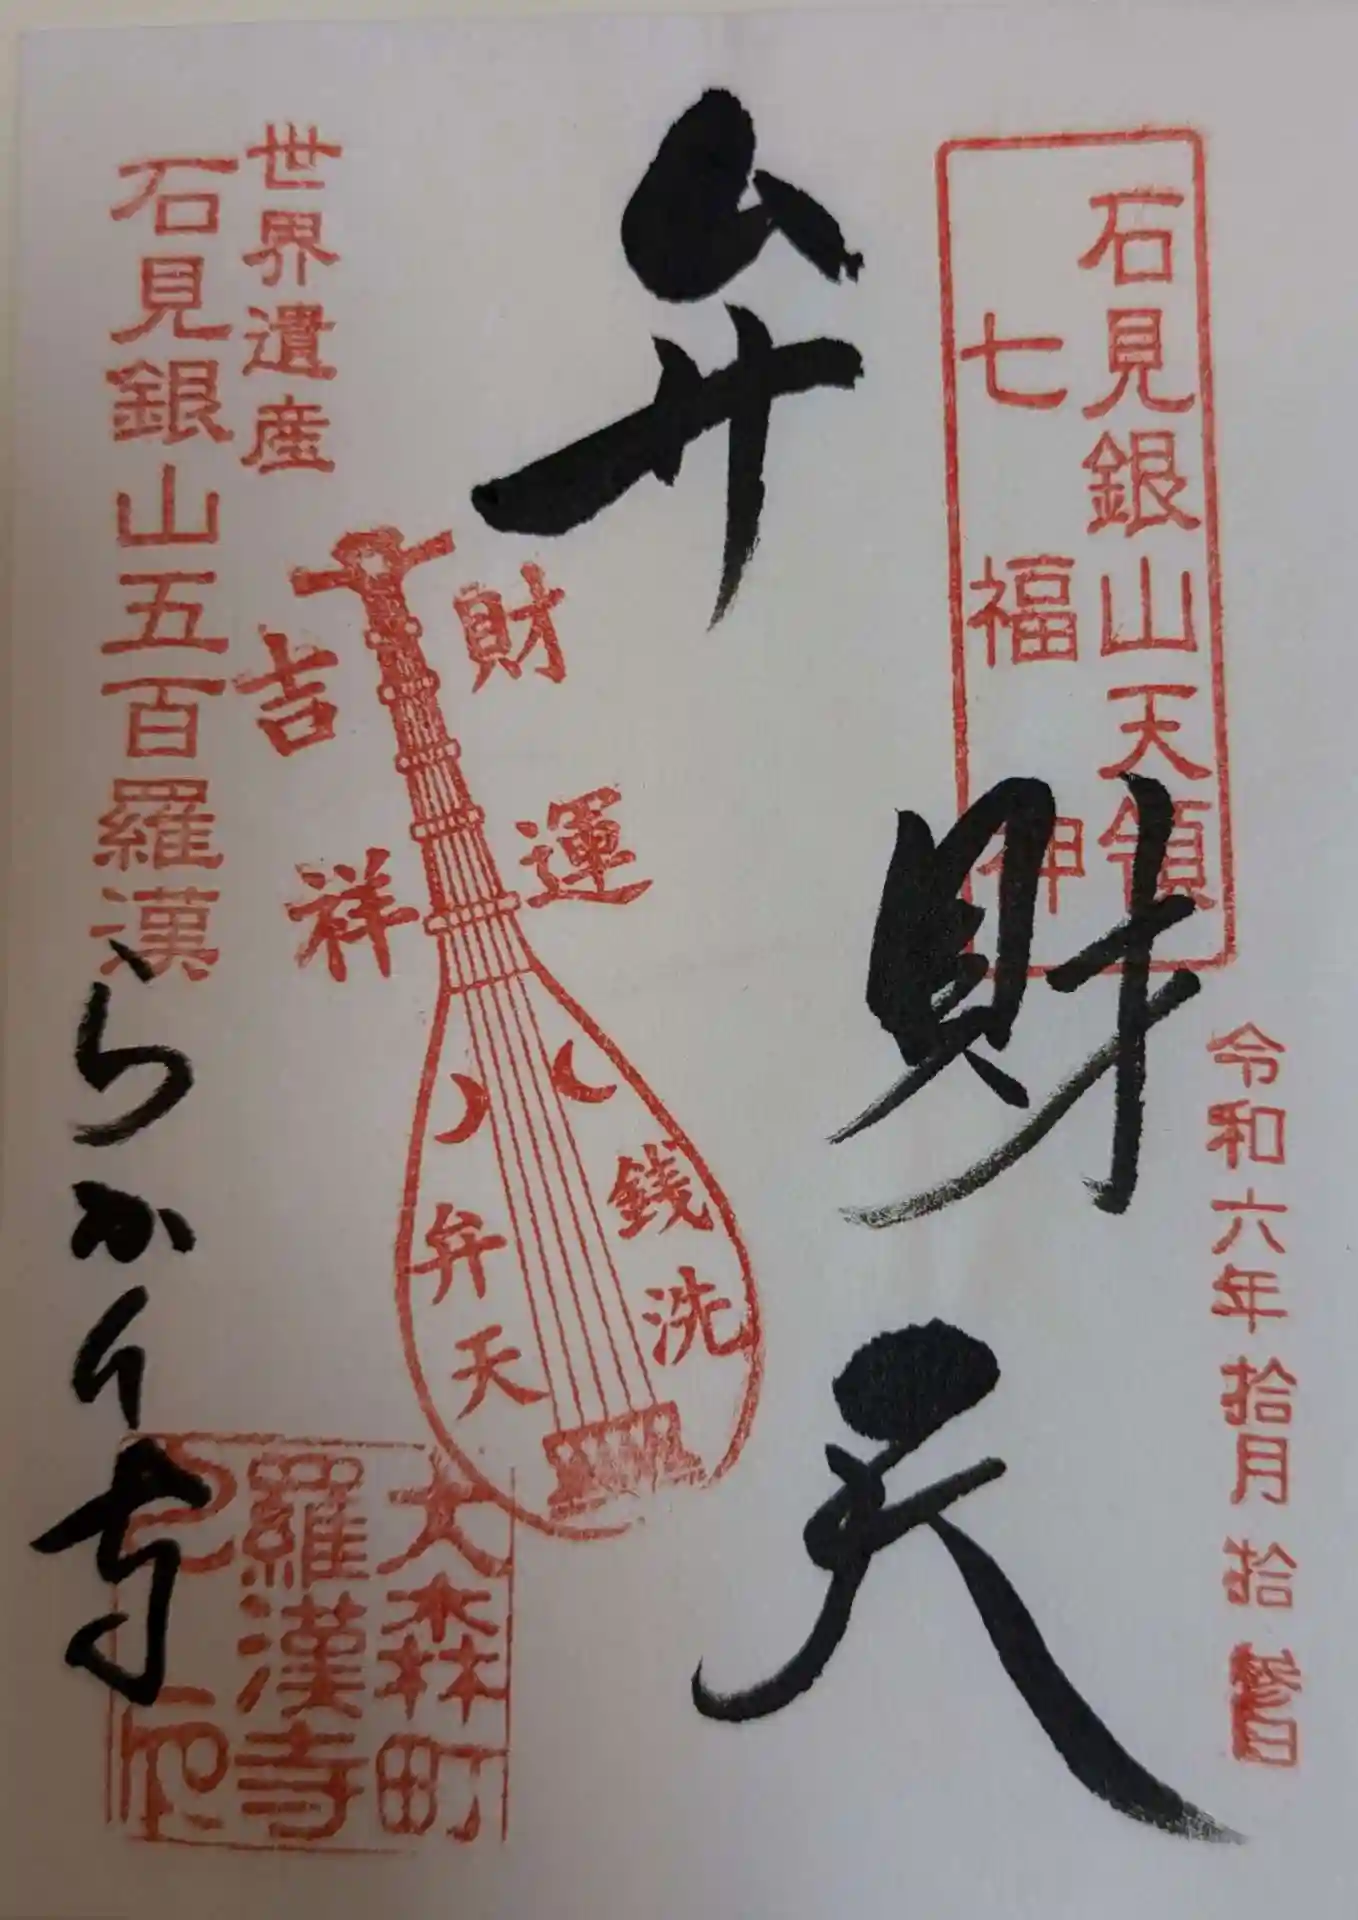 石見銀山天領
七福神
令和六年拾月拾参日
弁財天
財運
吉祥
銭洗
弁天
世界遺産
石見銀山五百羅漢
らかん寺
大森町
羅漢寺